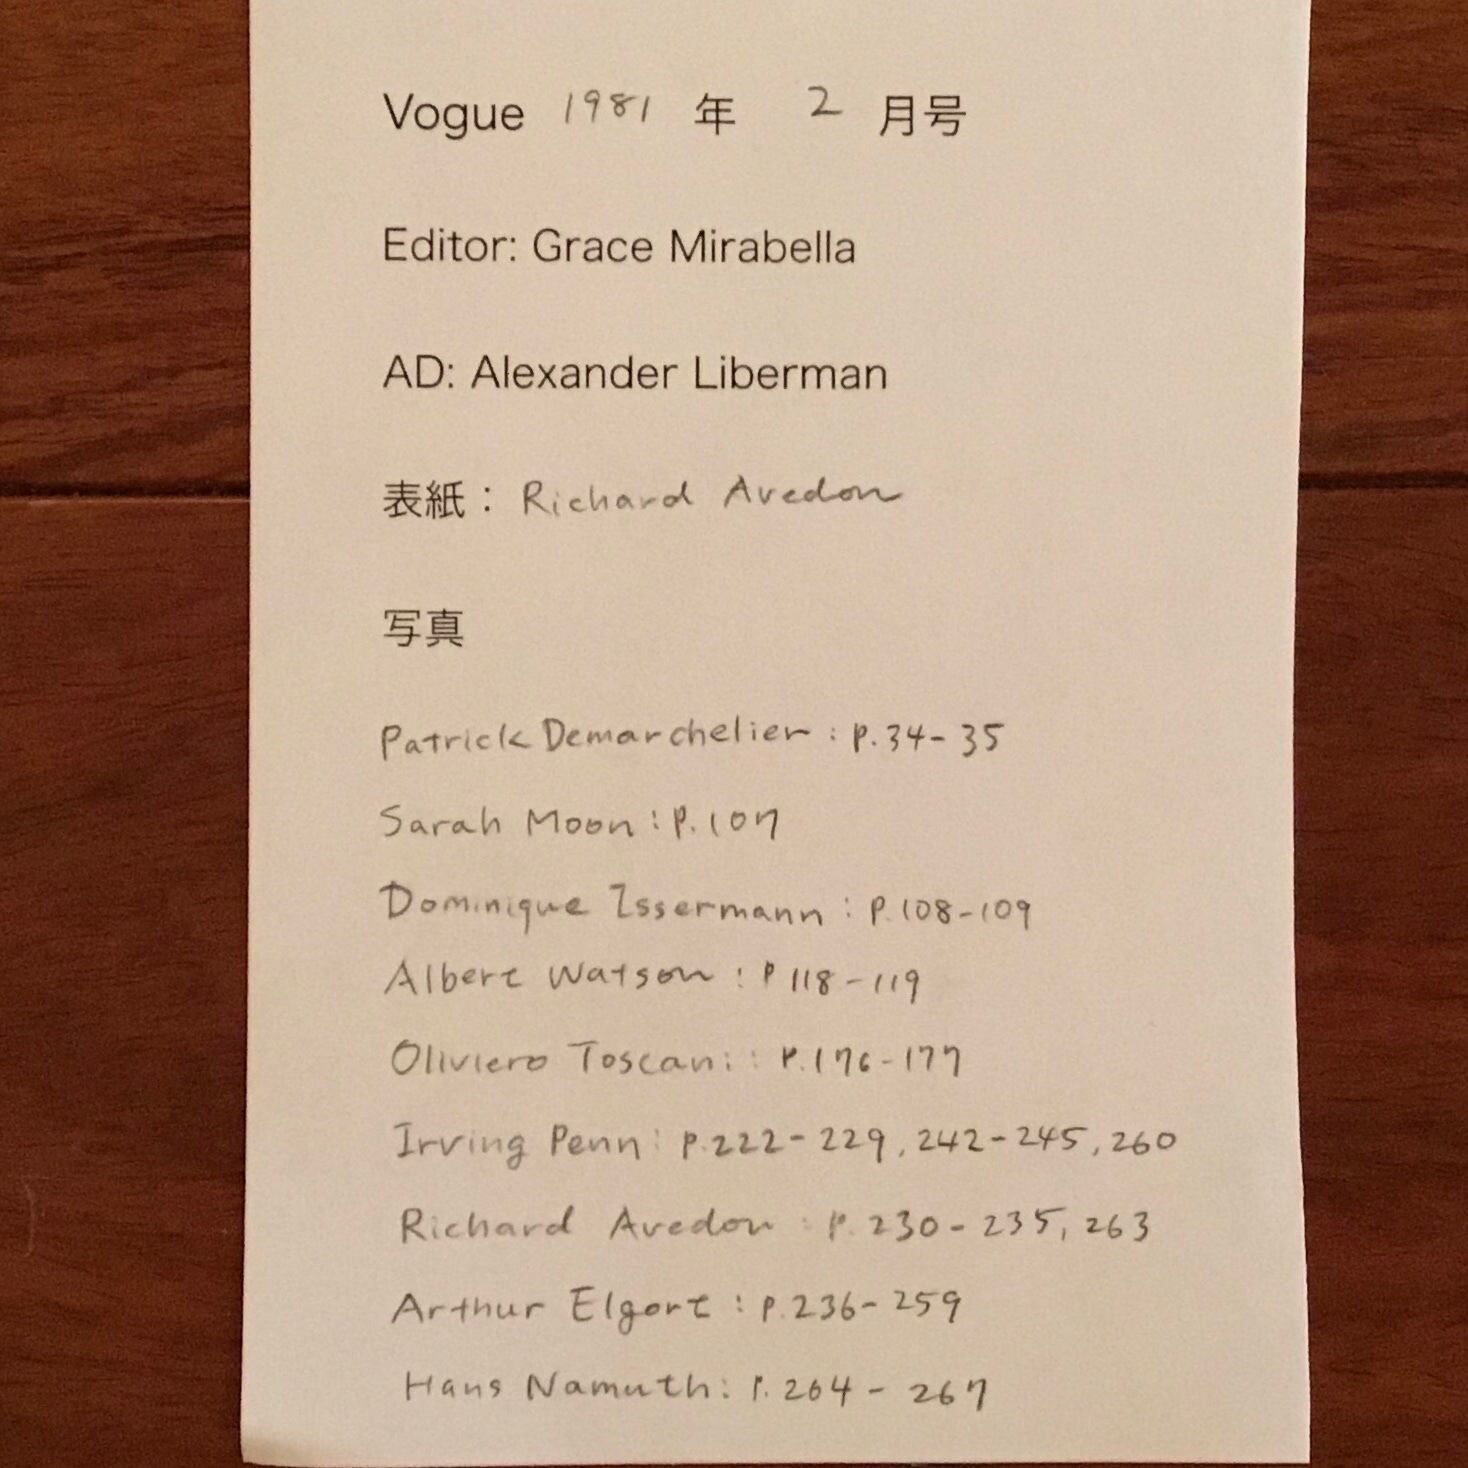 Vogue 1981 年 2 月号
Editor: Grace Mirabella
AD: Alexander Liberman
表紙： Richard Avedon
写真
Patrick Demarchelier : p.34-35
Sarah Moon : p.107
Dominique Issermann : p.108-109
Albert Watson : p 118-119
Oliviero Toscani : p.176-177
Irving Penn : p.222-229, 242-245, 260
Richard Avedon : p.230-235, 263
Arthur Elgort : p.236-259
Hans Namuth : p.264-267